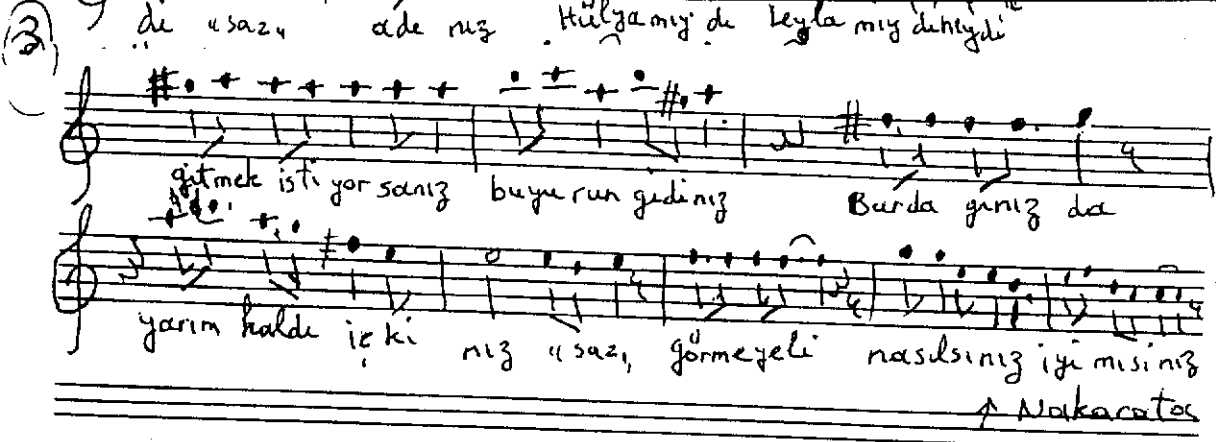 3
di "saz" ade niz Hülya mıy dı Leyla mıy dı neydi
gitmek isti yor sanız buyu run gidi niz Burda gınız da
yarım kaldı iç ki niz "saz" görmeyeli nasılsınız iyi misi niz
↑ Nakarata